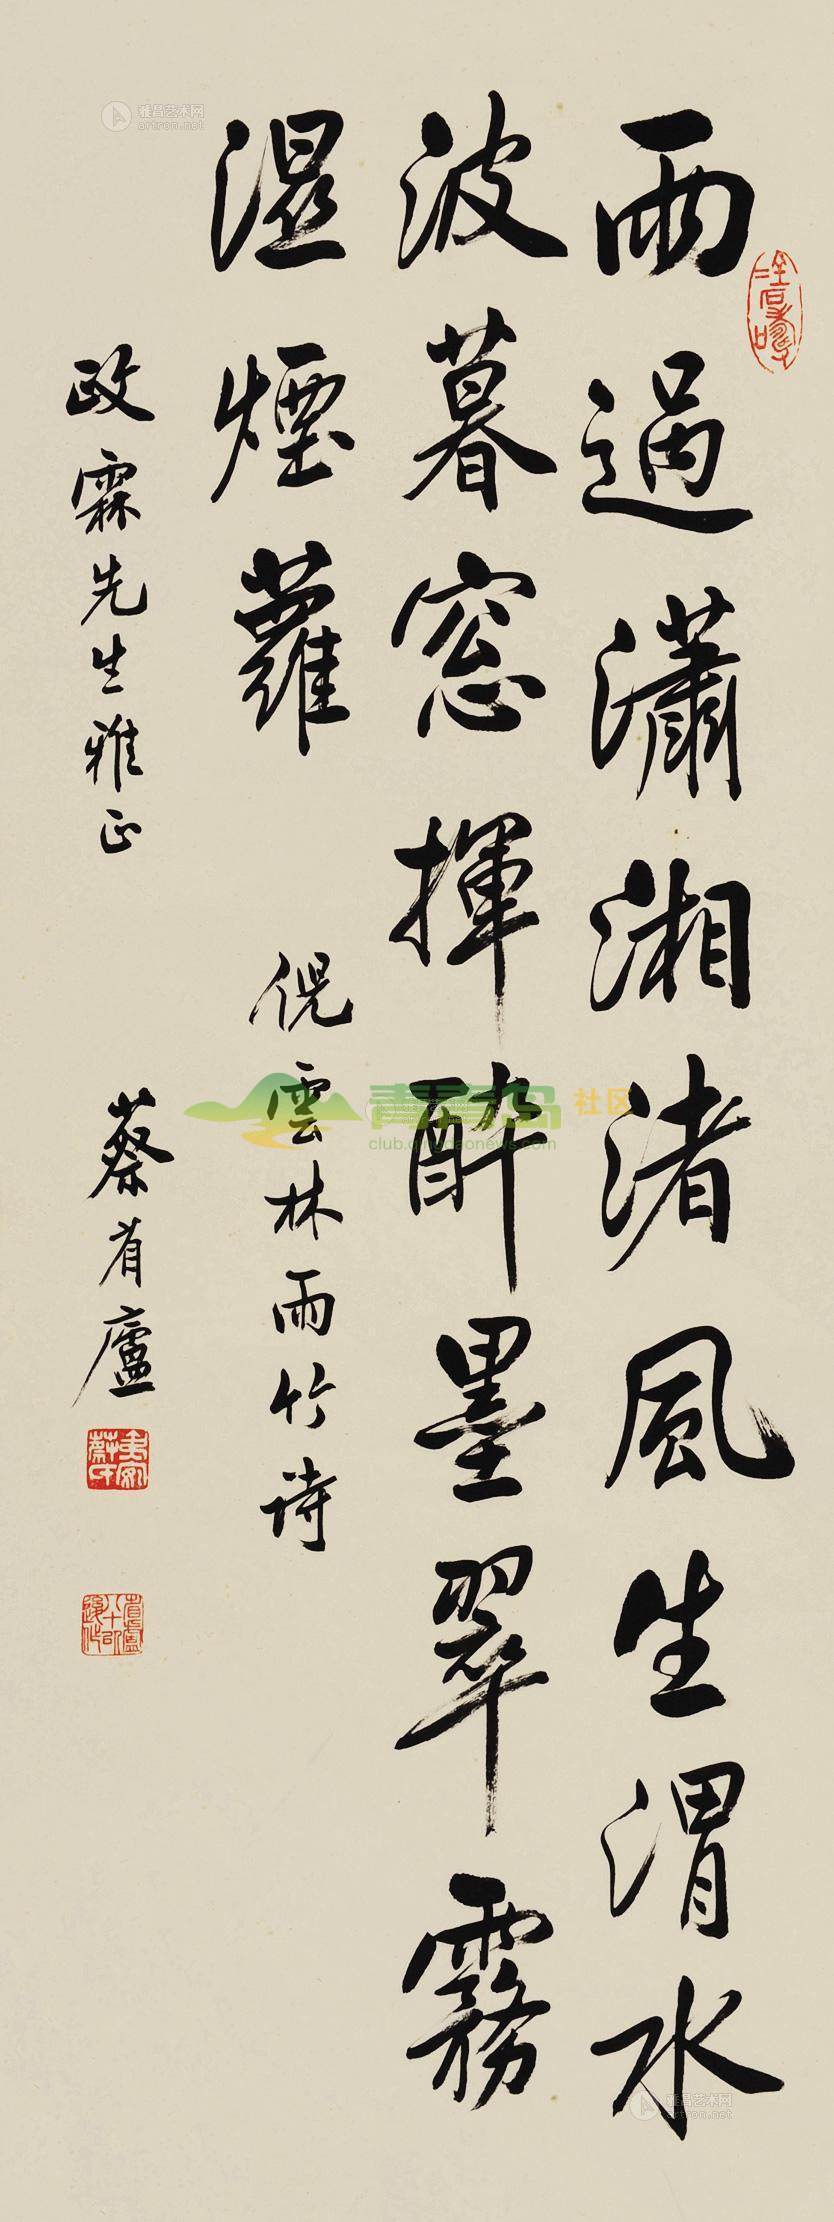 雨過瀟湘渚風生渭水
波暮窓揮醉墨翠霧
濕煙蘿
倪雲林雨竹诗
政霖先生雅正
蔡省廬
雅昌艺术网
artron.net
青青岛社区
club.qingdaonews.com
雅昌艺术网
artron.net